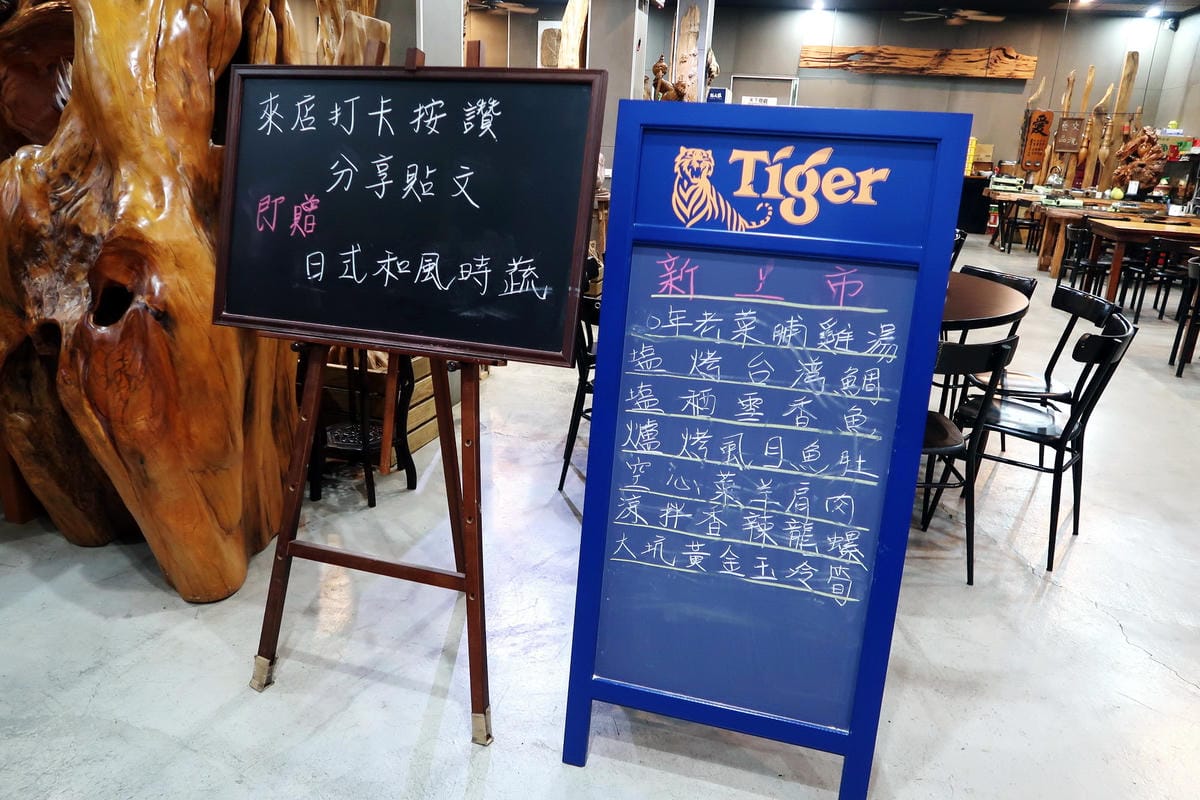 來店打卡按讚
分享貼文
即贈
日式和風時蔬
Tiger
新上市
0年老菜脯雞湯
塩烤台湾鯛
塩栖雲香魚
爐烤虱目魚肚
空心菜羊肩肉
涼拌香辣龍螺
大坑黃金玉冷筍
愛